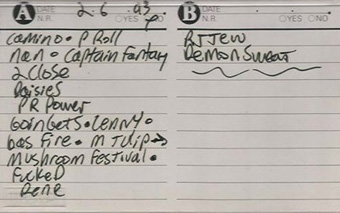 A DATE 2.6.93
N.R. YES NO
Camino • P Roll
nan • Captain Fantasy
2 Close
Daisies
PR Power
Goin Gets • LENNY •
Gas Fire • M Tulip →
Mushroom Festival •
Fucked
Rene
B DATE
N.R. YES NO
PJ Jew
Demon Sweat